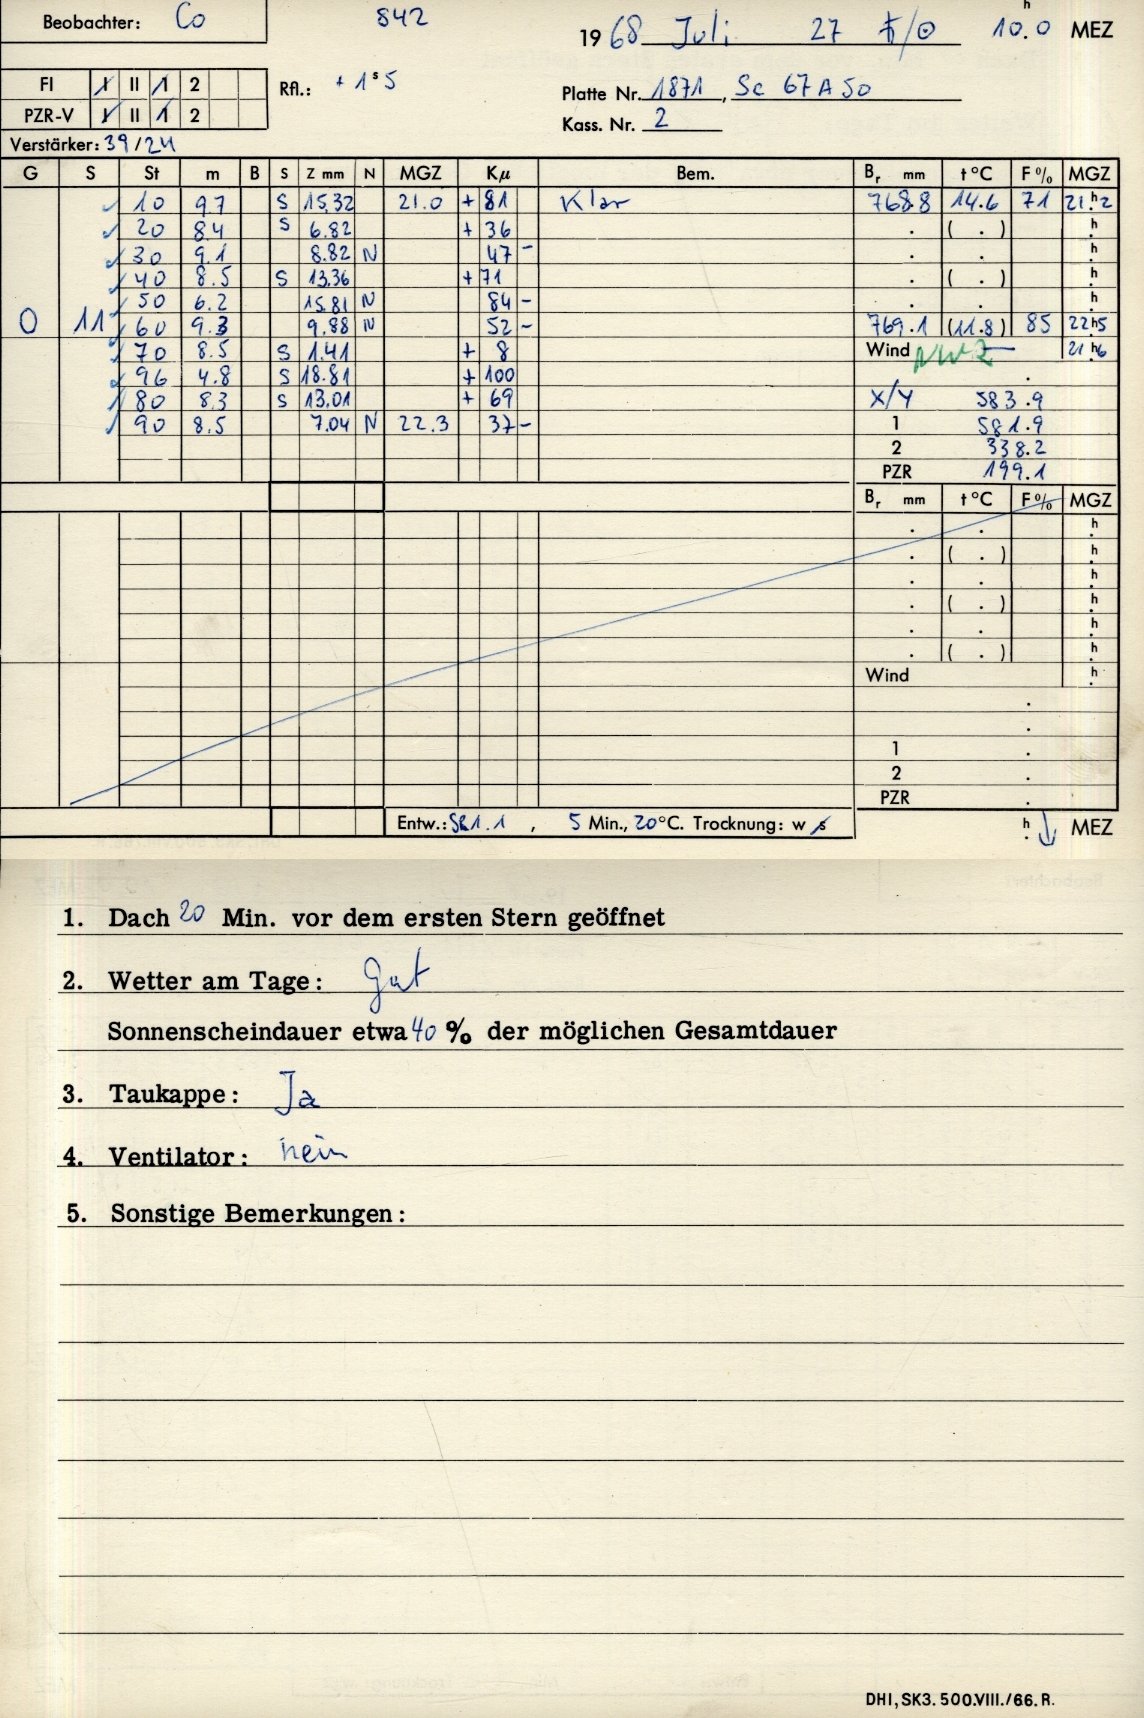 Beobachter: Co 842 1968 Juli 27 ♄/☉ 10.0 h MEZ
FI I II 1 2 Rfl.: + 1ˢ5 Platte Nr. 1871, Sc 67 A 50
PZR-V I II 1 2 Kass. Nr. 2
Verstärker: 39/24
G S St m B S Z mm N MGZ Kμ Bem. Br mm t °C F % MGZ
10 9.7 S 15.32 21.0 + 81 Klar 768.8 14.6 71 21.h2
20 8.4 S 6.82 + 36 . ( . ) h
30 9.1 8.82 N 47 - . . h
40 8.5 S 13.36 + 71 . ( . ) h
50 6.2 15.81 N 84 - . . h
0 11 60 9.3 9.88 N 52 - 769.1 (11.8) 85 22h5
70 8.5 S 1.41 + 8 Wind NW 2 21h6
96 4.8 S 18.81 + 100 .
80 8.3 S 13.01 + 69 X/Y 583.9
90 8.5 7.04 N 22.3 37 - 1 581.9
2 338.2
PZR 199.1
Br mm t °C F % MGZ
. . h
. ( . ) h
. . h
. ( . ) h
. . h
. ( . ) h
Wind h
.
.
1 .
2 .
PZR .
Entw.: 581.1 , 5 Min., 20 °C. Trocknung: w s h ↓ MEZ
1. Dach 20 Min. vor dem ersten Stern geöffnet
2. Wetter am Tage: gut
Sonnenscheindauer etwa 40 % der möglichen Gesamtdauer
3. Taukappe: Ja
4. Ventilator: nein
5. Sonstige Bemerkungen:
DHI, SK3. 500.VIII./66. R.